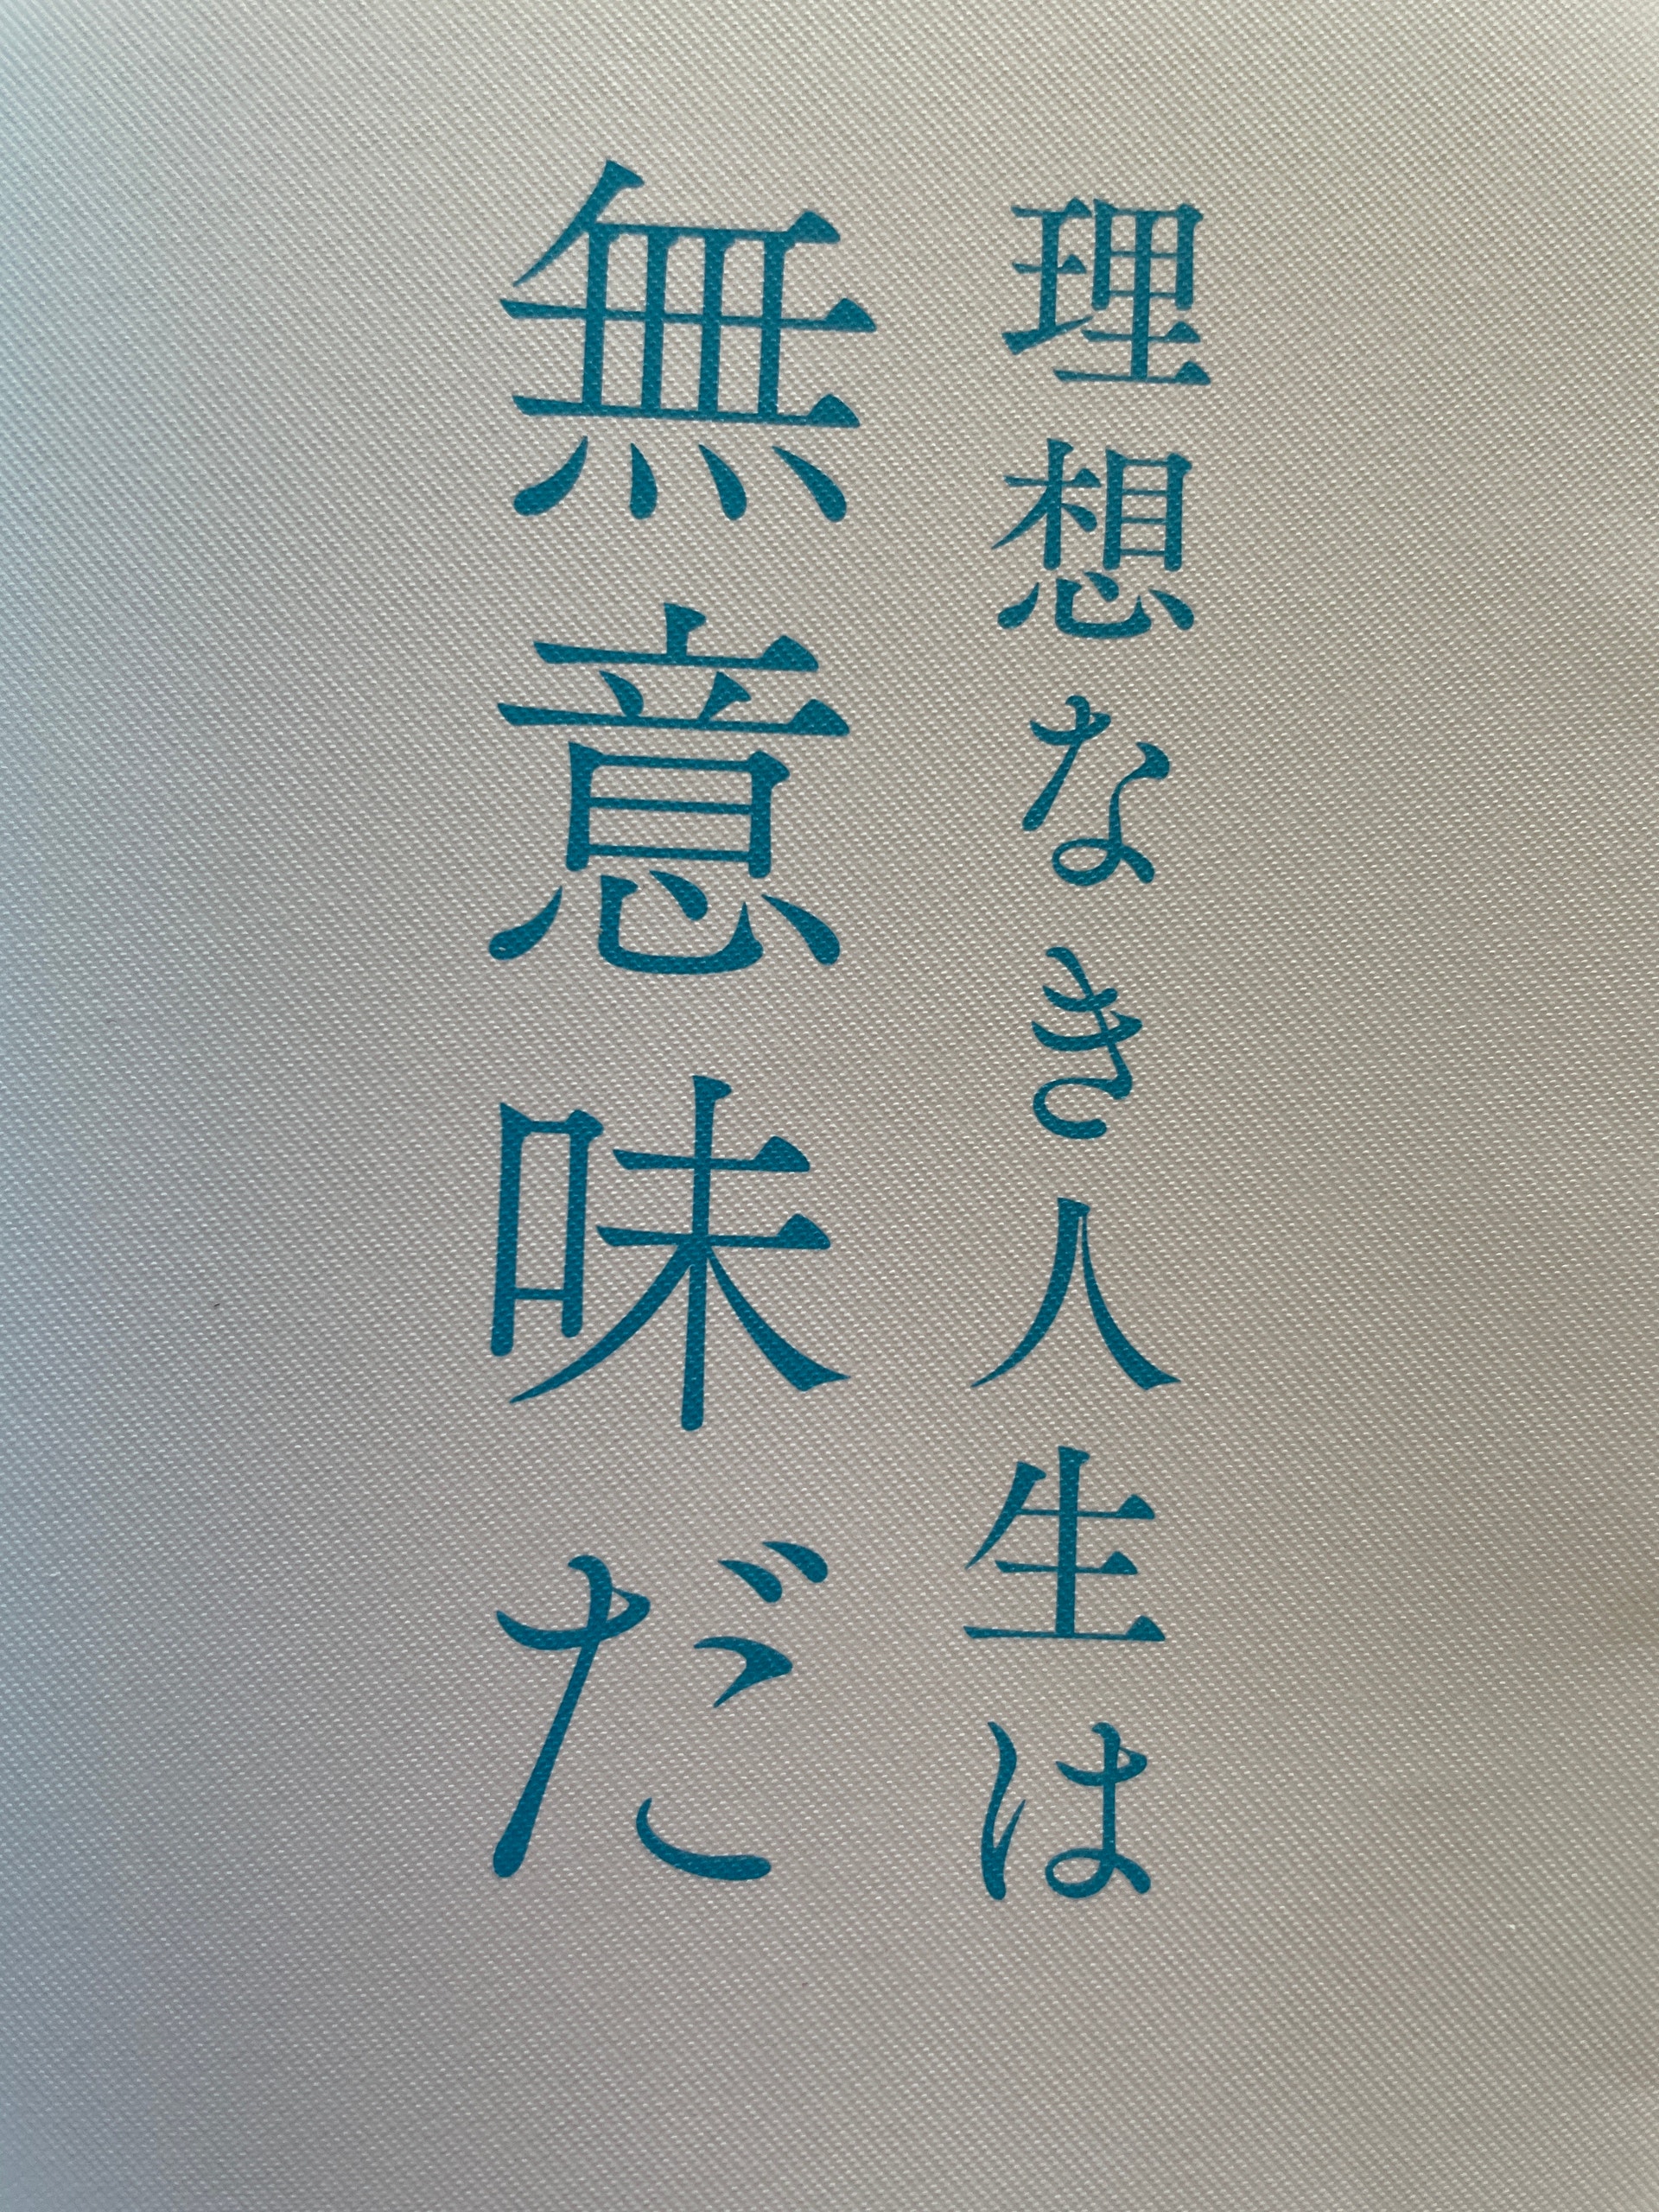 理想なき人生は
無意味だ